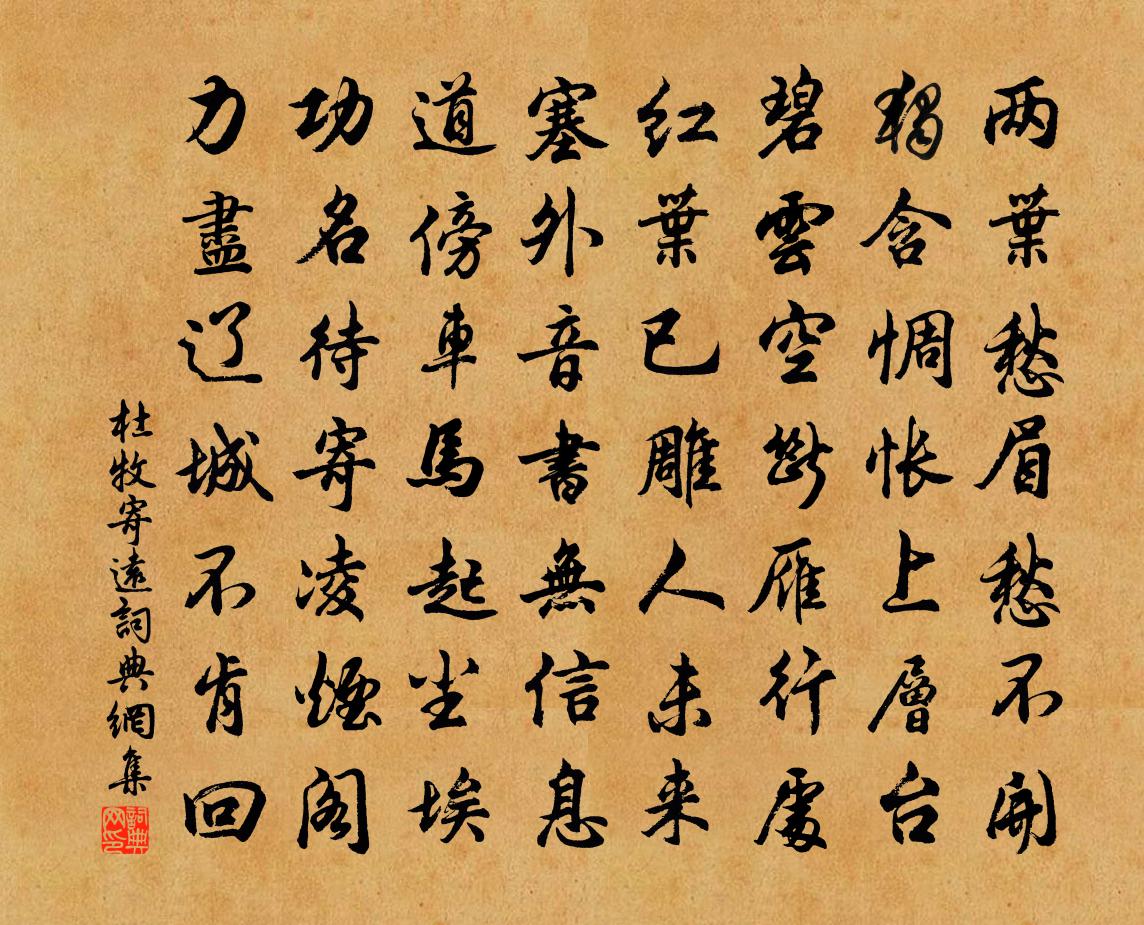 两葉愁眉愁不開
獨含惆怅上層台
碧雲空斷雁行處
红葉已雕人未来
塞外音書無信息
道傍車馬起尘埃
功名待寄凌煙阁
力盡辽城不肯回
杜牧寄遠詞典網集
詞典网印